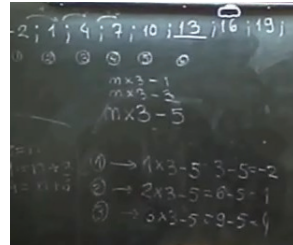 -2 ; 1 ; 4 ; 7 ; 10 ; 13 ; 16 ; 19 ;
① ② ③ ④ ⑤ ⑥
n×3-1
n×3-3
n×3-5
① → 1×3-5=3-5=-2
② → 2×3-5=6-5=1
③ → 3×3-5=9-5=4